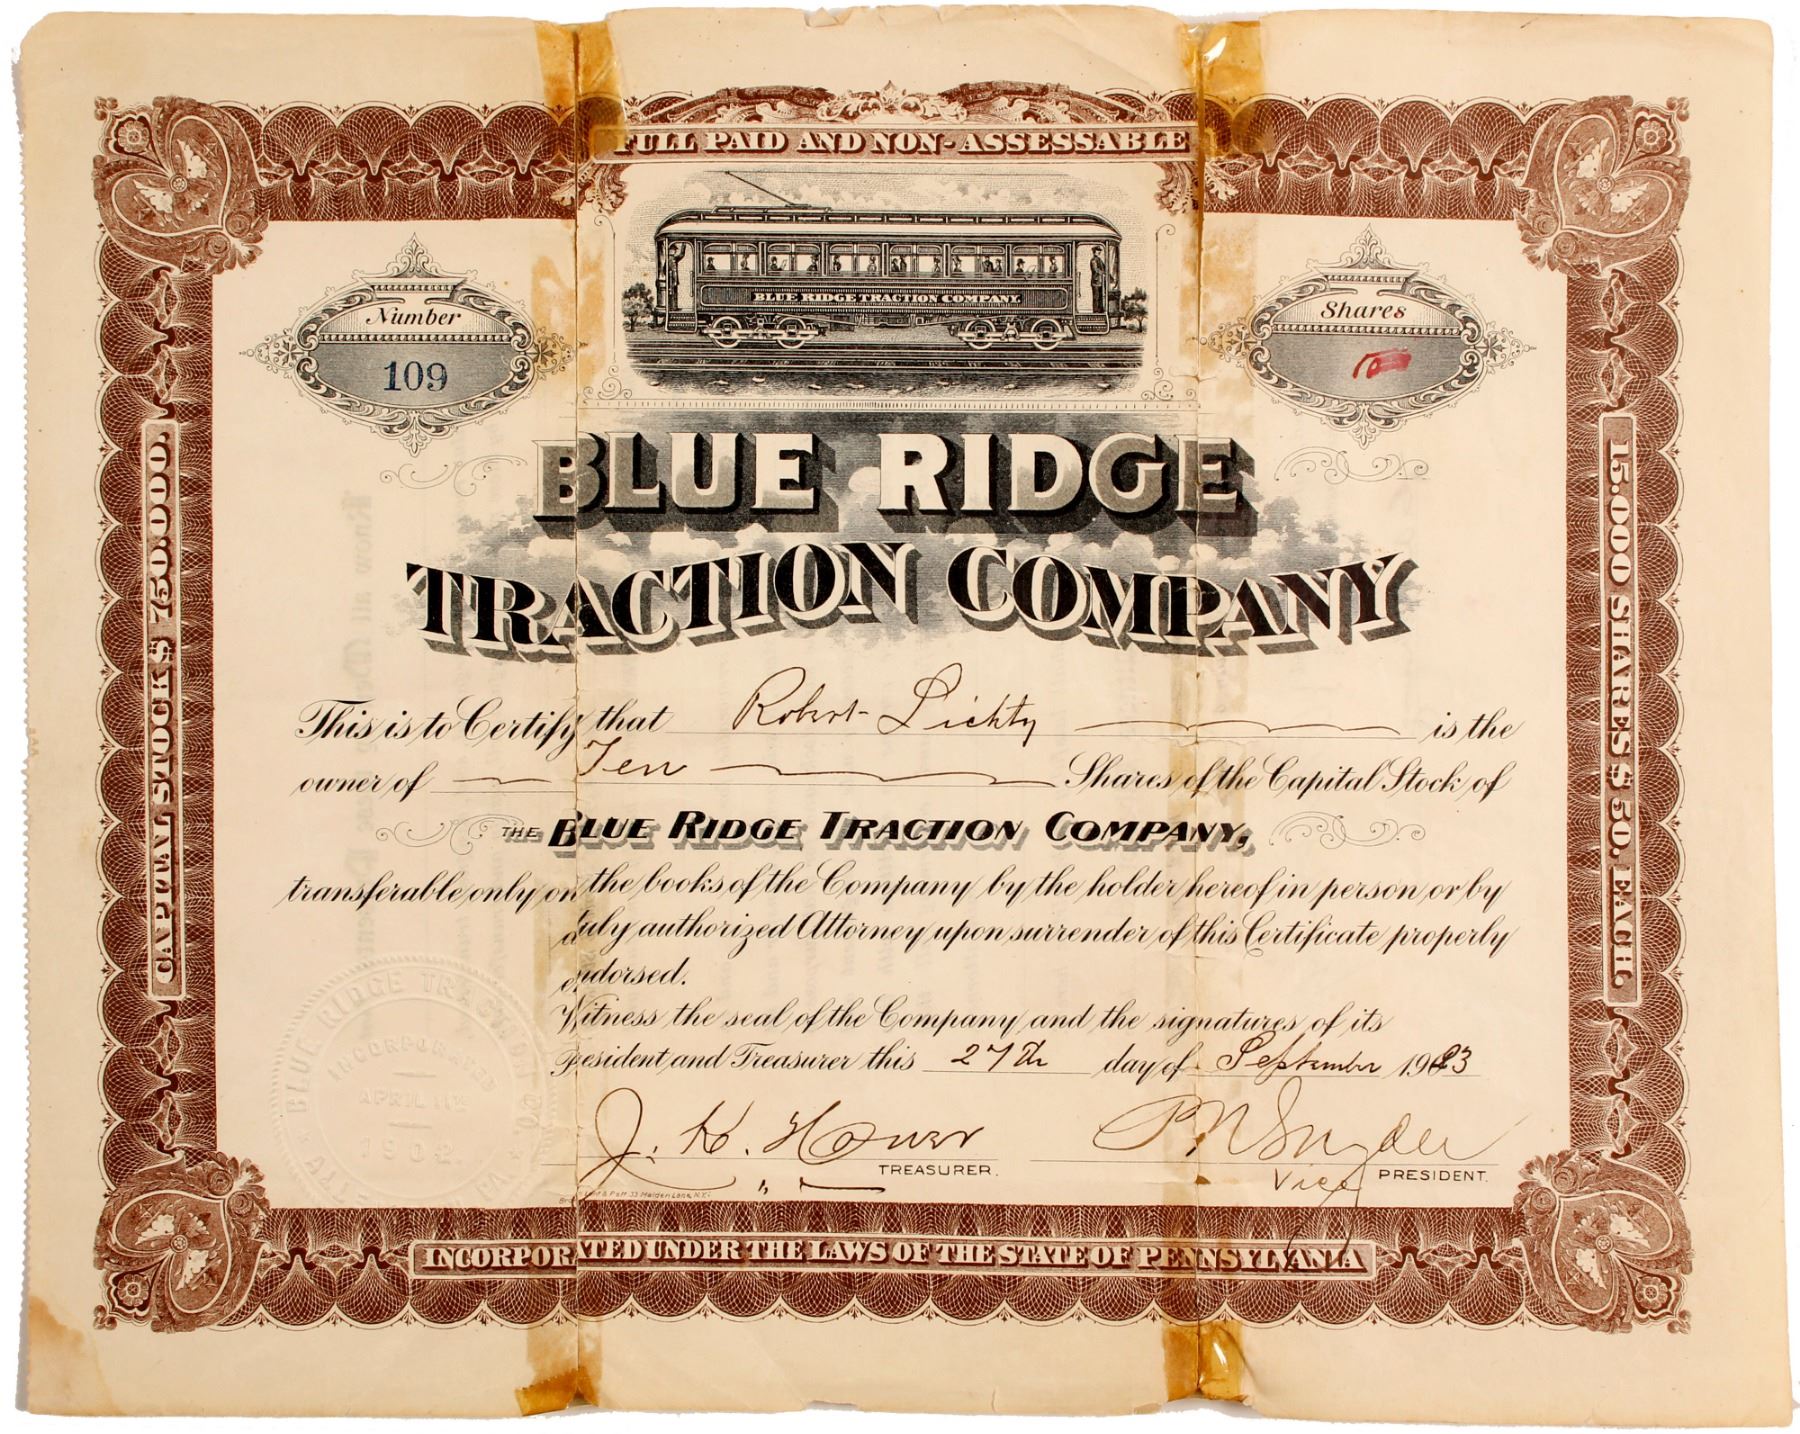 FULL PAID AND NON-ASSESSABLE
BLUE RIDGE TRACTION COMPANY
Number
109
Shares
10
BLUE RIDGE
TRACTION COMPANY
CAPITAL STOCK $ 750.000.
15.000 SHARES $ 50. EACH.
This is to Certify that Robert Lichty is the
owner of Ten Shares of the Capital Stock of
THE BLUE RIDGE TRACTION COMPANY,
transferable only on the books of the Company by the holder hereof in person or by
duly authorized Attorney upon surrender of this Certificate properly
endorsed.
Witness the seal of the Company and the signatures of its
President and Treasurer this 27th day of September 1903
TREASURER.
Vice PRESIDENT.
BLUE RIDGE TRACTION CO
INCORPORATED
APRIL 11th
1902
33 Maiden Lane, N.Y.
INCORPORATED UNDER THE LAWS OF THE STATE OF PENNSYLVANIA